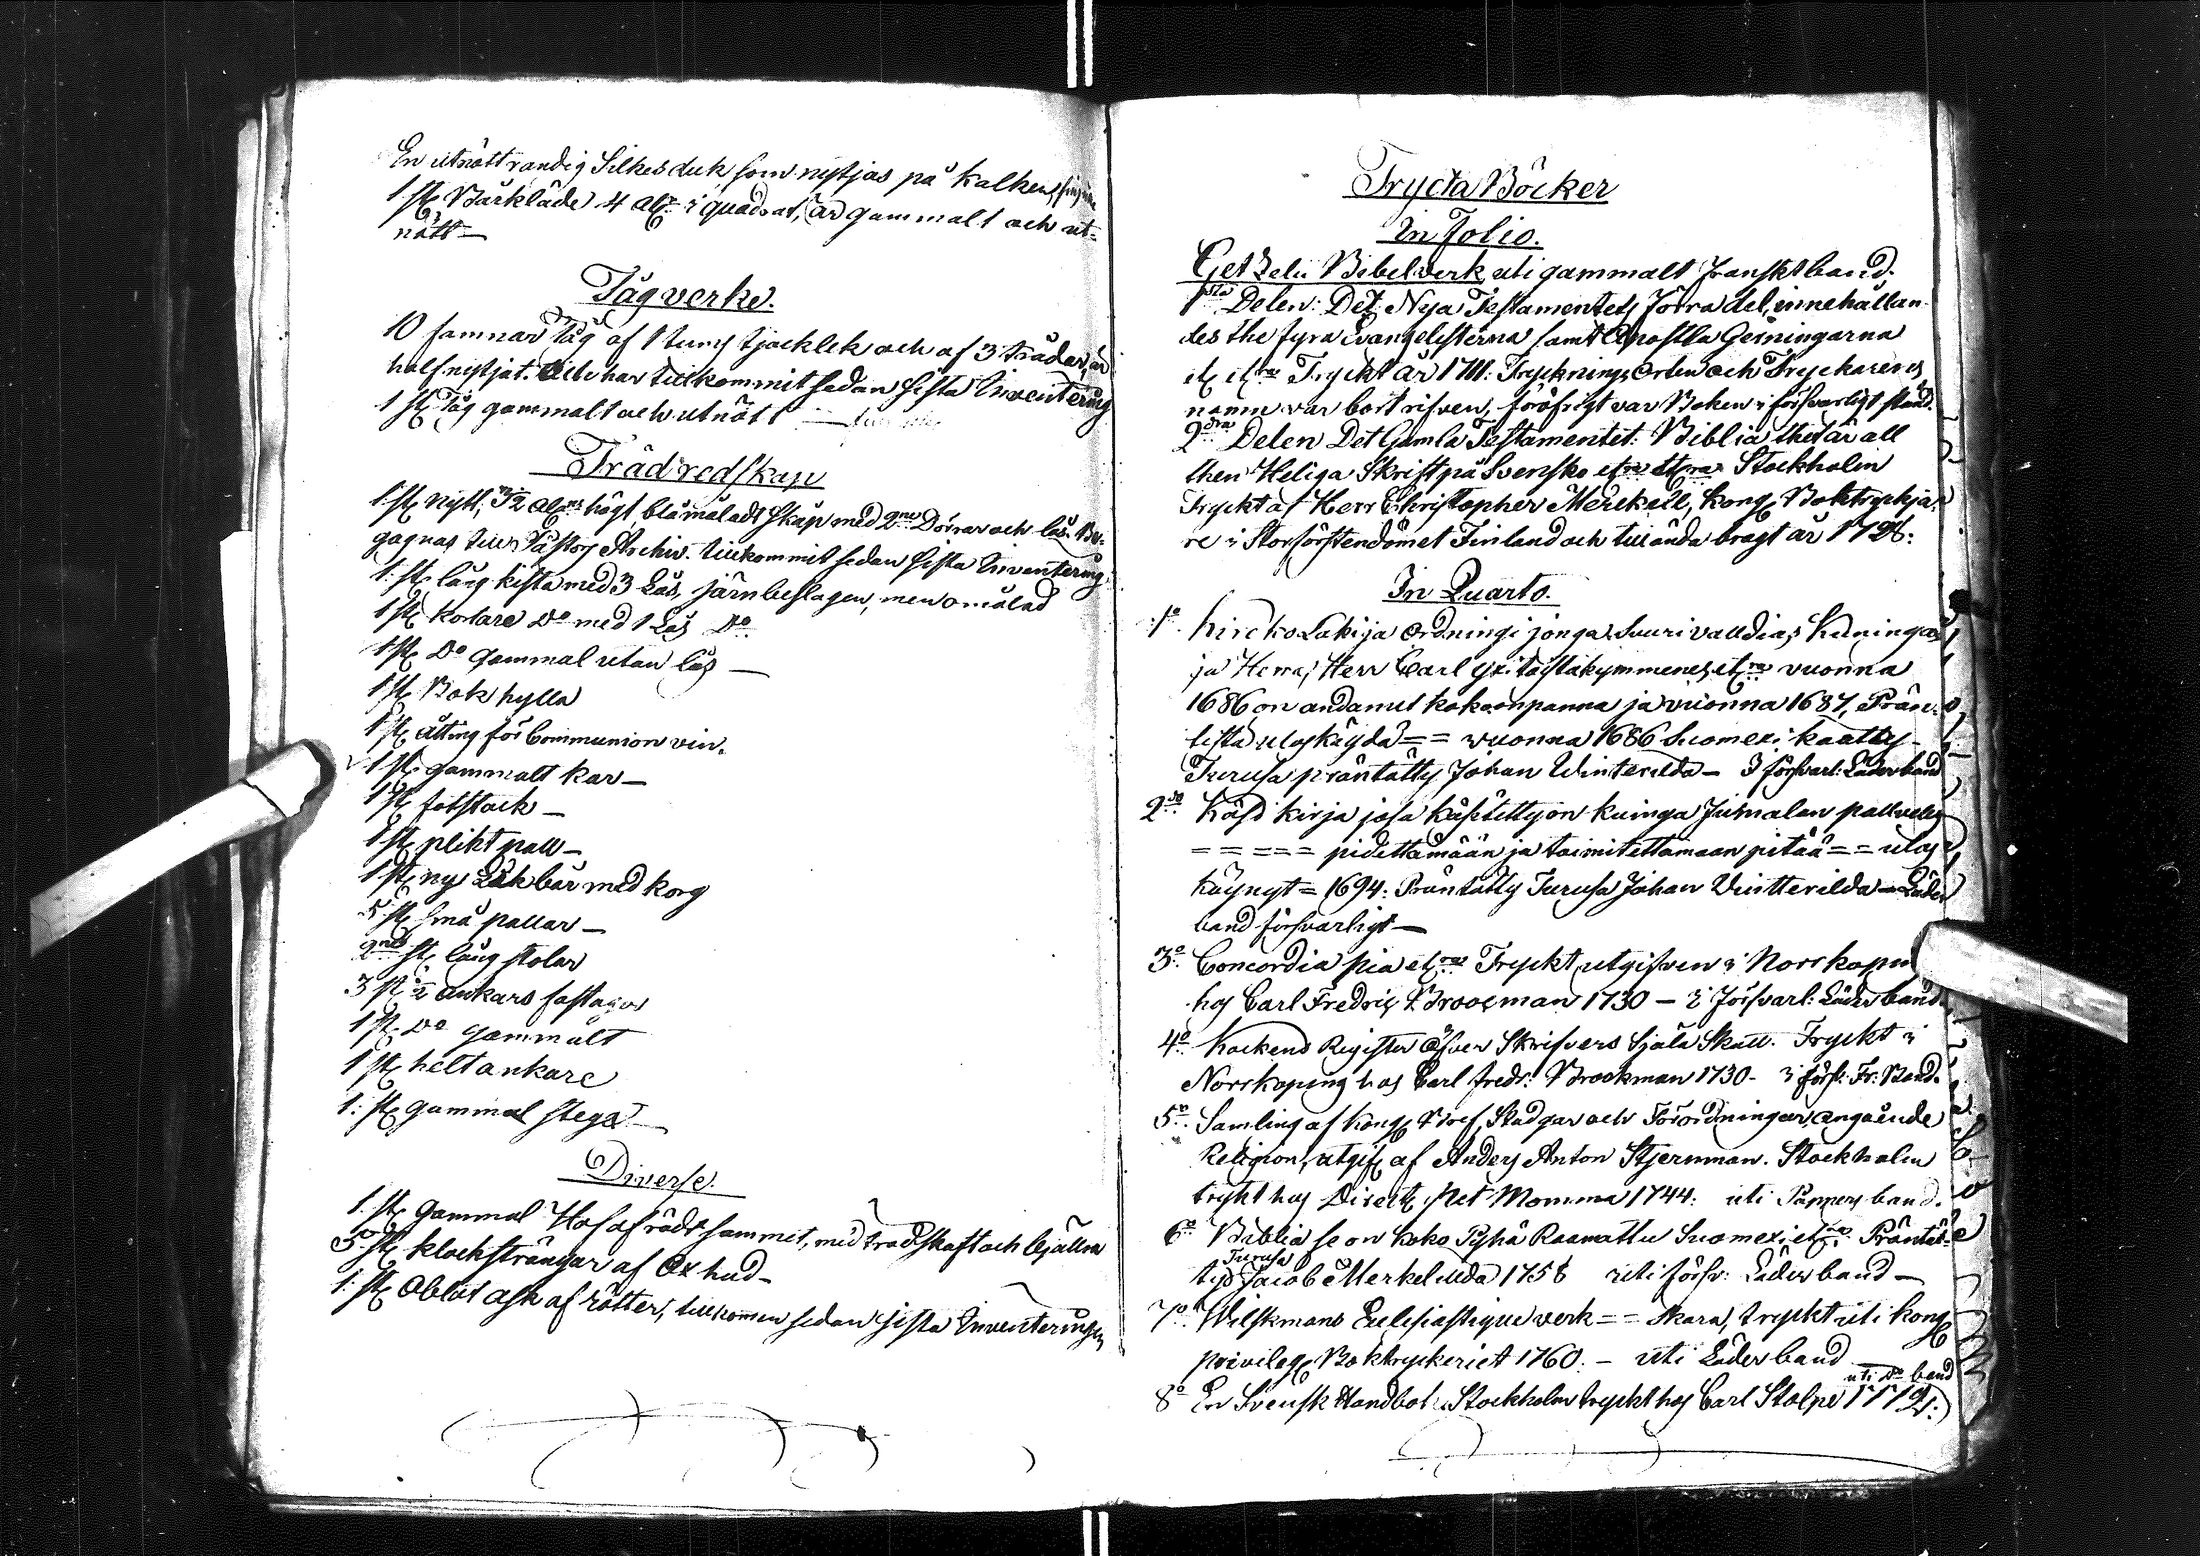 En utnött randig Silkes duk som nyttjas på kalken,
1 st. Bårkläde 4 aln: i quadrat, är gammalt och ut-
nött —
Tågverke.
10 famnar Tåg af 1 tums tjocklek och af 3 träder, är
half nyttjat. tillkommit sedan sista Inventering
1 st. Tåg gammalt och utnött —
Trädredskap
1 st. nytt, aln: högt, blåmåladt skåp med 2ne Dörrar och lås. Be-
gagnas till Pastors Archiv. tillkommit sedan sista Inventering.
1: st. lång kista med 3 Lås, järnbeslagen, men omålad
1 st. kortare Do med 1 Lås Do
1 st. Do gammal utan lås —
1 st. Bokhylla
1 st. åtting för Communion vin.
1 st. gammalt kar —
1 st. fotstock —
1 st. plikt pall —
1 st. ny Lik bår med korg
5 st. små pallar —
2ne st. lång stolar
3 st. ½ ankars fastager
1 st. Do gammalt
1 st. helt ankare
1: st. gammal stege —
Diverse.
1. st. gammal Hof af rödt sammet, med trädskaft och bjällra
3 st. klocksträngar af Oxhud —
1: st. Oblat ask af rötter, tillkommen sedan sista Inventeringen
Tryckta Böcker
In Folio.
Getzelii Bibelverk uti gammalt franskt band.
1sta Delen: Det Nya Testamentets förra del, innehållan-
des the fyra Evangelisterna samt Apostla Gerningarna
etc etra Tryckt år 1711. Trycknings Orten och Tryckarens
namn var bortrifven, föröfrigt var Boken i försvarligt stånd.
2dra Delen Det Gamla Testamentet: Biblia thet är all
then Heliga Skrift på Svensko etra etra Stockholm
Tryckt af Herr Christopher Merckell, Kong. Boktryckja-
re i Storförstendömet Finland och till ända bragt år 1728.
In Quarto.
1o. Kircko Laki ja Ordningi jonga Suurivaldias Kuningas
ja Herra, Herr Carl yxitoistakymmenes etra vuonna
1686 on andanut kokoonpanna ja vuonna 1687, Prän-
tistä uloskäydä = = vuonna 1686 Suomexi käätty
Turusa präntätty Johan Winterilda — i försvarl: Läderband
2do Käsi kirja josa käsitetty on kuinga Jumalan palvelus
= = = = = pidettämään ja toimitettamaan pitää = = ulos
käynyt = 1694. Präntätty Turusa Johan Wintterilda — Läder
band försvarligt —
3o. Concordia pia etra Tryckt utgifven i Norrköpin
hos Carl Fredric Broocman 1730 — i försvarl: Läder band
4o. Register öfver Skrifvers Själa Skatt. Tryckt i
Norrköping hos Carl Fredr: Brockman 1730 — i försv: Fr: Band.
5o. Samling af Kong. Bref, Stadgar och Förordningar angående
Religion, utgif. af Anders Anton Stjernman. Stockholm
tryckt hos Direct. Pet Momma 1744. uti Pappers band.
6o Biblia se on Koko Pyhä Raamattu Suomexi etra. Präntät-
ty Turusa Jacob Merkelilda 1758 uti försv: Läder band —
7o. Wilskmans Eclesiastique verk = = Skara, tryckt uti kong.
privileg. Boktryckeriet 1760. — uti Läder band
uti Do band
8o En Svensk Handbok. Stockholm tryckt hos Carl Stolpe